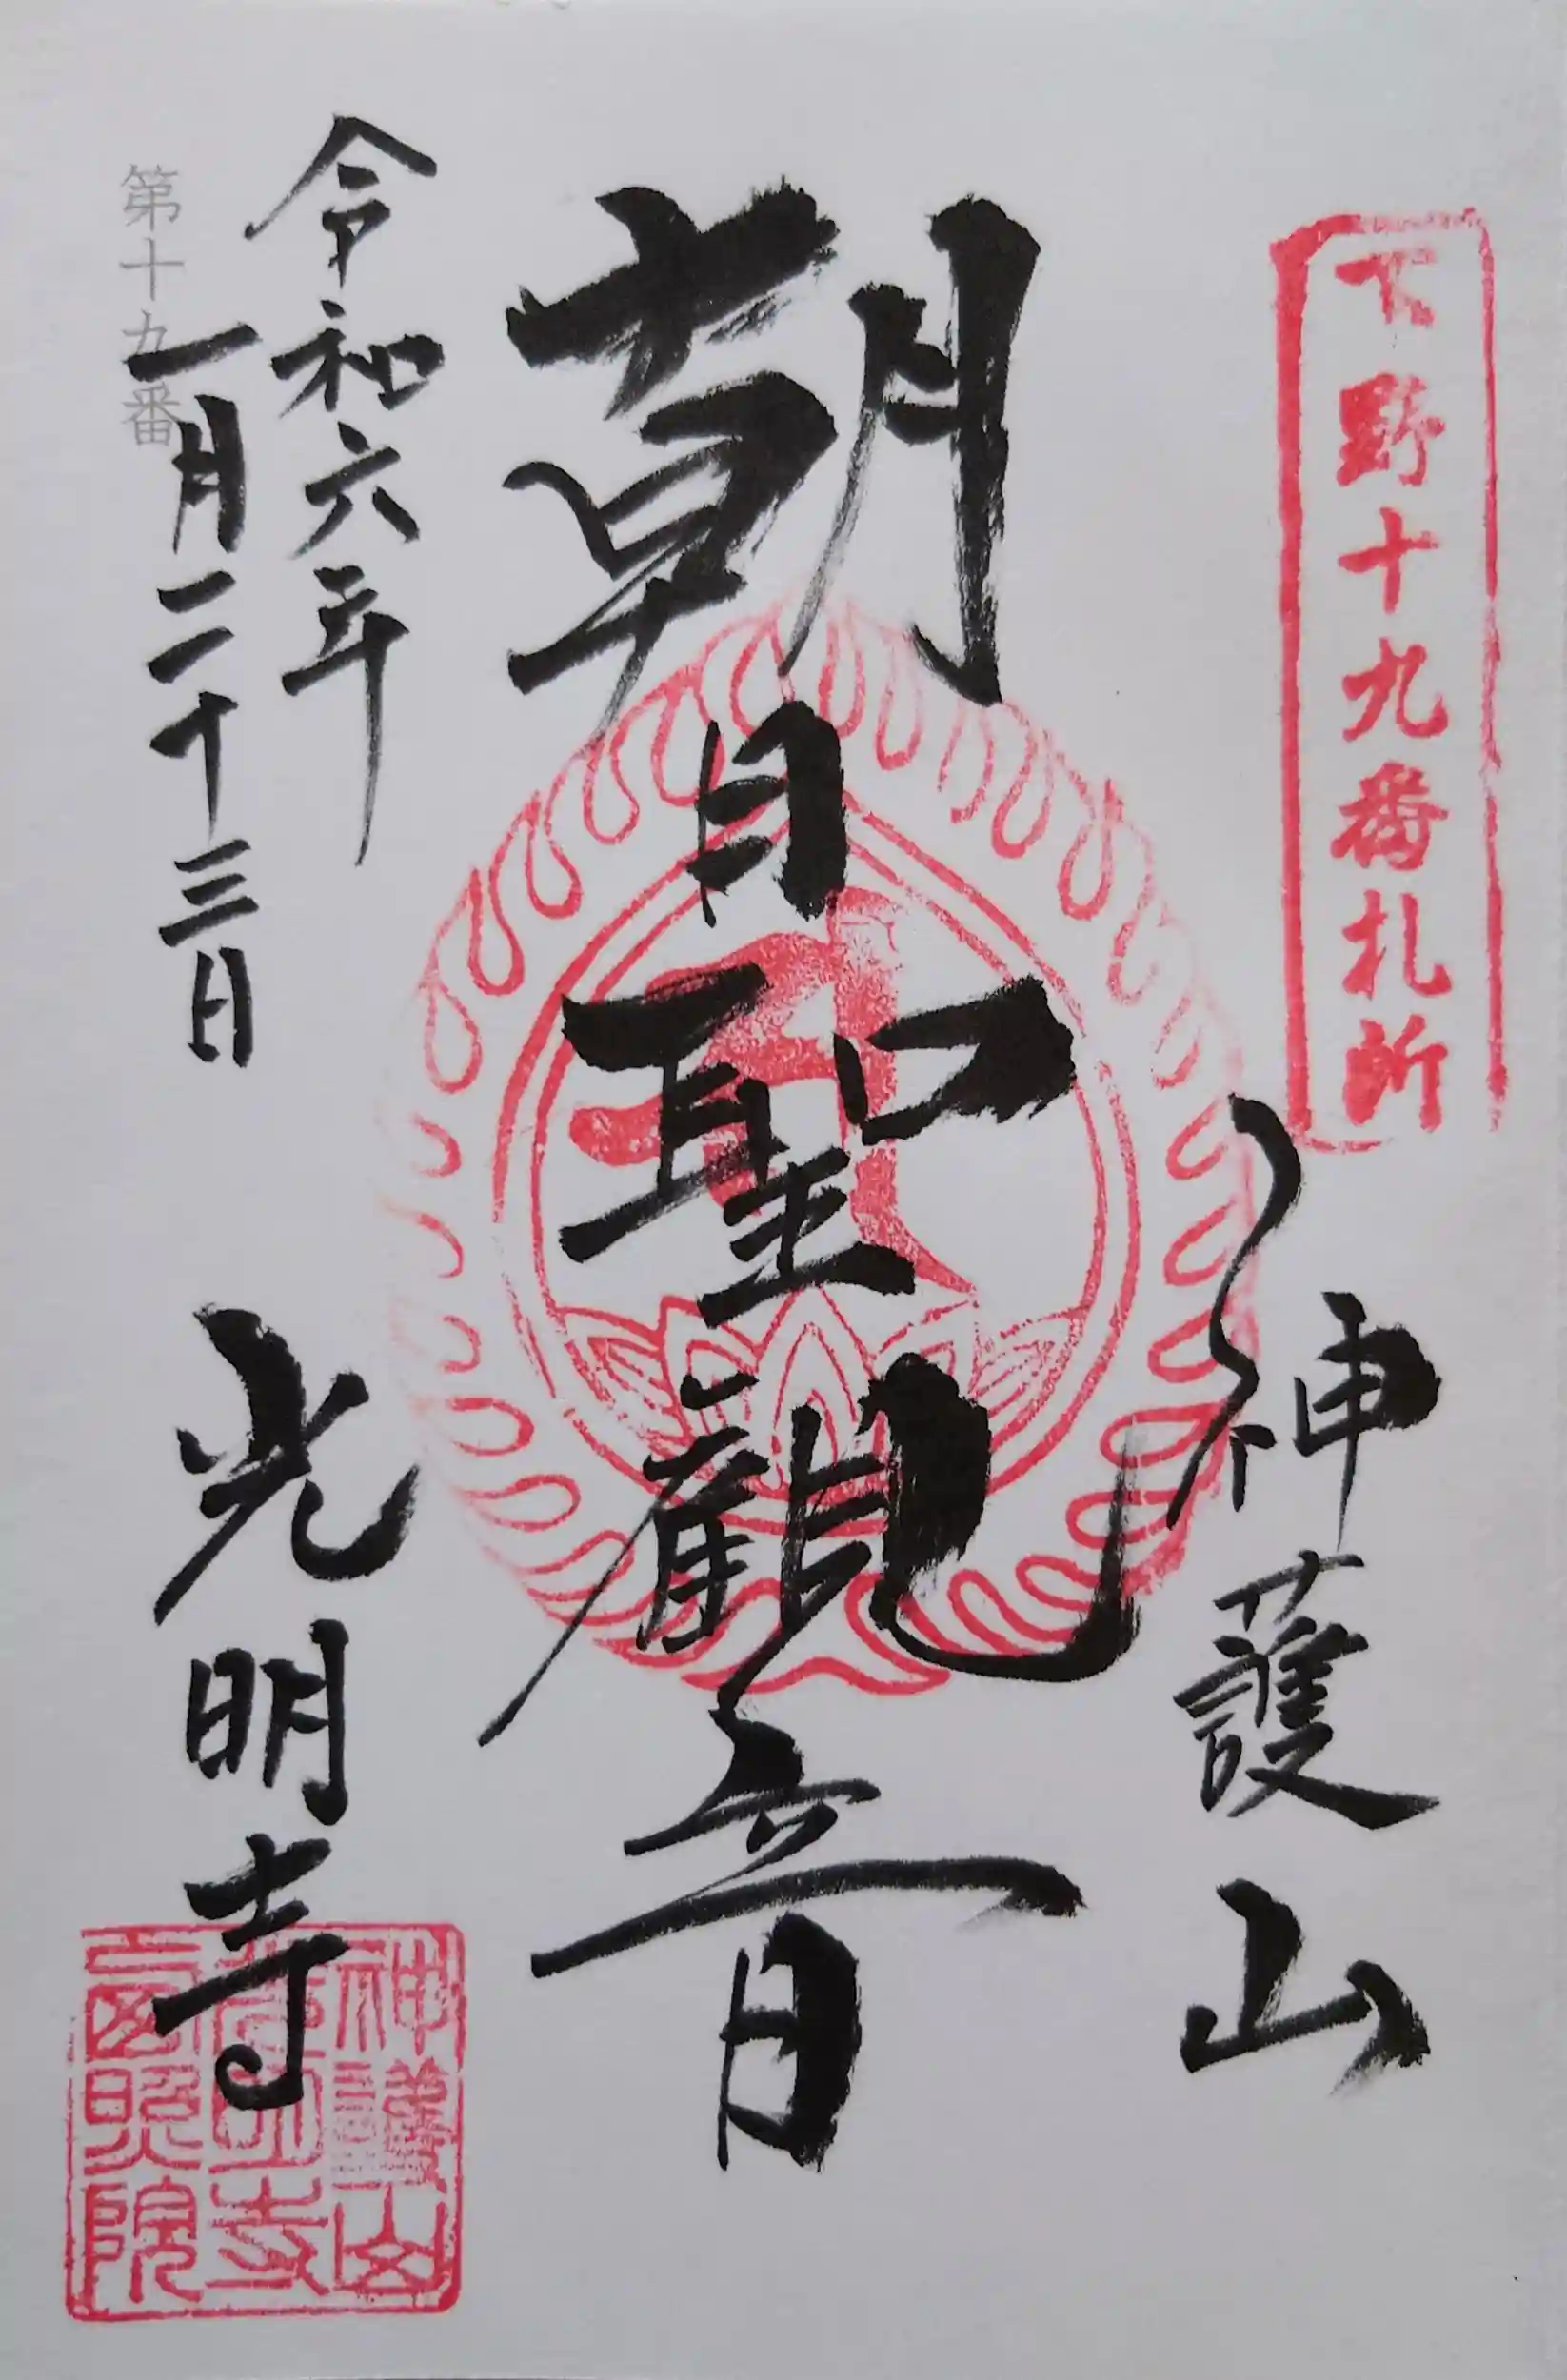 下野十九番札所
神護山
朝日聖觀音
令和六年
一月二十三日
第十九番
光明寺
神護山
光明寺
院